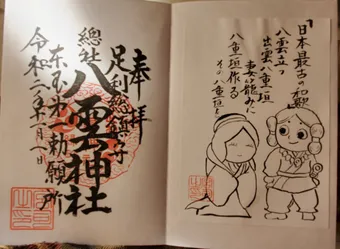 「日本最古の和歌
八雲立つ
出雲八重垣
妻籠みに
八重垣作る
その八重垣を
奉拝
足利総鎮守
總社 八雲神社
東国第一勅願所
令和二年 月 日